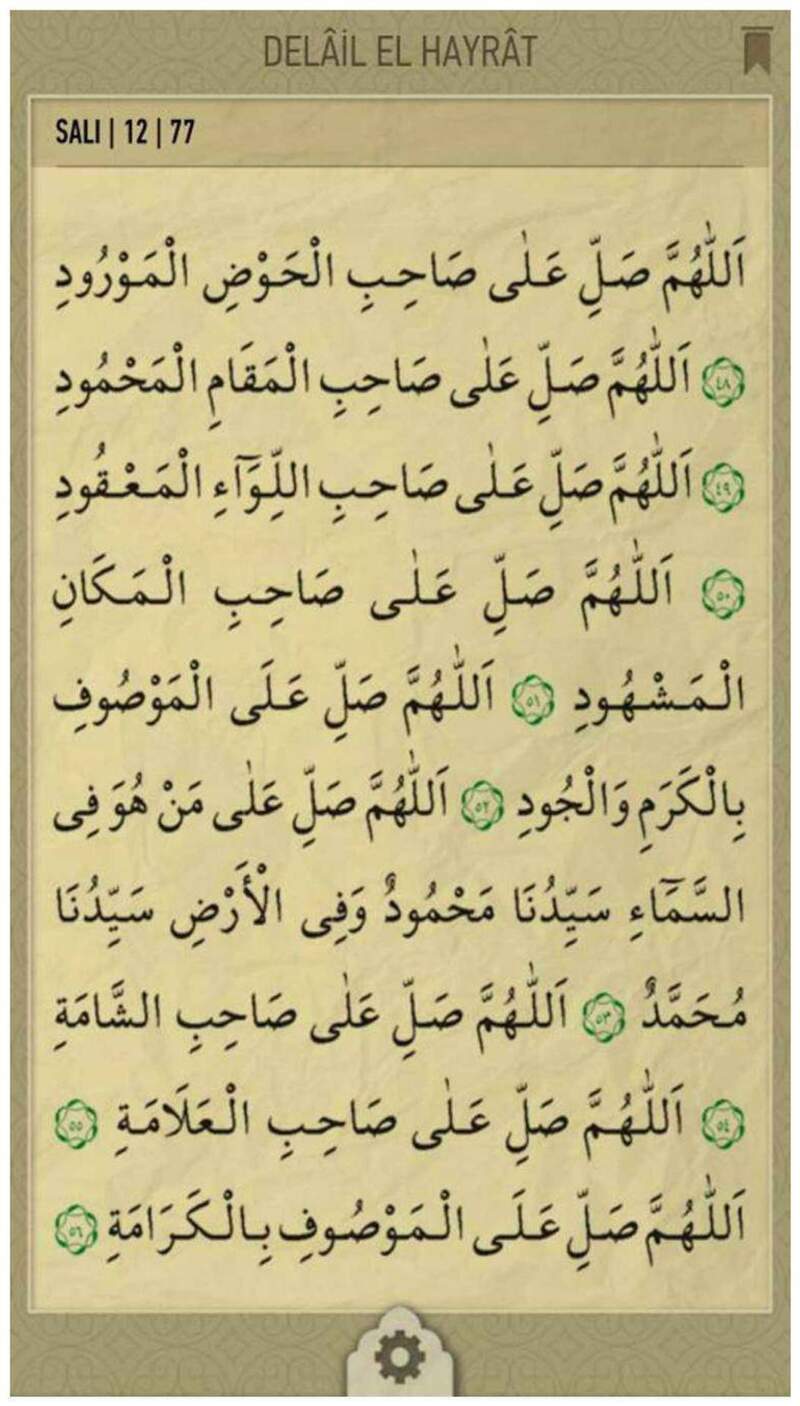 DELÂİL EL HAYRÂT
SALI | 12 | 77
اَللّٰهُمَّ صَلِّ عَلٰى صَاحِبِ الْحَوْضِ الْمَوْرُودِ
٤٨ اَللّٰهُمَّ صَلِّ عَلٰى صَاحِبِ الْمَقَامِ الْمَحْمُودِ
٤٩ اَللّٰهُمَّ صَلِّ عَلٰى صَاحِبِ اللِّوَٓاءِ الْمَعْقُودِ
٥٠ اَللّٰهُمَّ صَلِّ عَلٰى صَاحِبِ الْمَكَانِ
الْمَشْهُودِ ٥١ اَللّٰهُمَّ صَلِّ عَلَى الْمَوْصُوفِ
بِالْكَرَمِ وَالْجُودِ ٥٢ اَللّٰهُمَّ صَلِّ عَلٰى مَنْ هُوَ فِى
السَّمَٓاءِ سَيِّدُنَا مَحْمُودٌ وَفِى الْأَرْضِ سَيِّدُنَا
مُحَمَّدٌ ٥٣ اَللّٰهُمَّ صَلِّ عَلٰى صَاحِبِ الشَّامَةِ
٥٤ اَللّٰهُمَّ صَلِّ عَلٰى صَاحِبِ الْعَلَامَةِ ٥٥
اَللّٰهُمَّ صَلِّ عَلَى الْمَوْصُوفِ بِالْكَرَامَةِ ٥٦